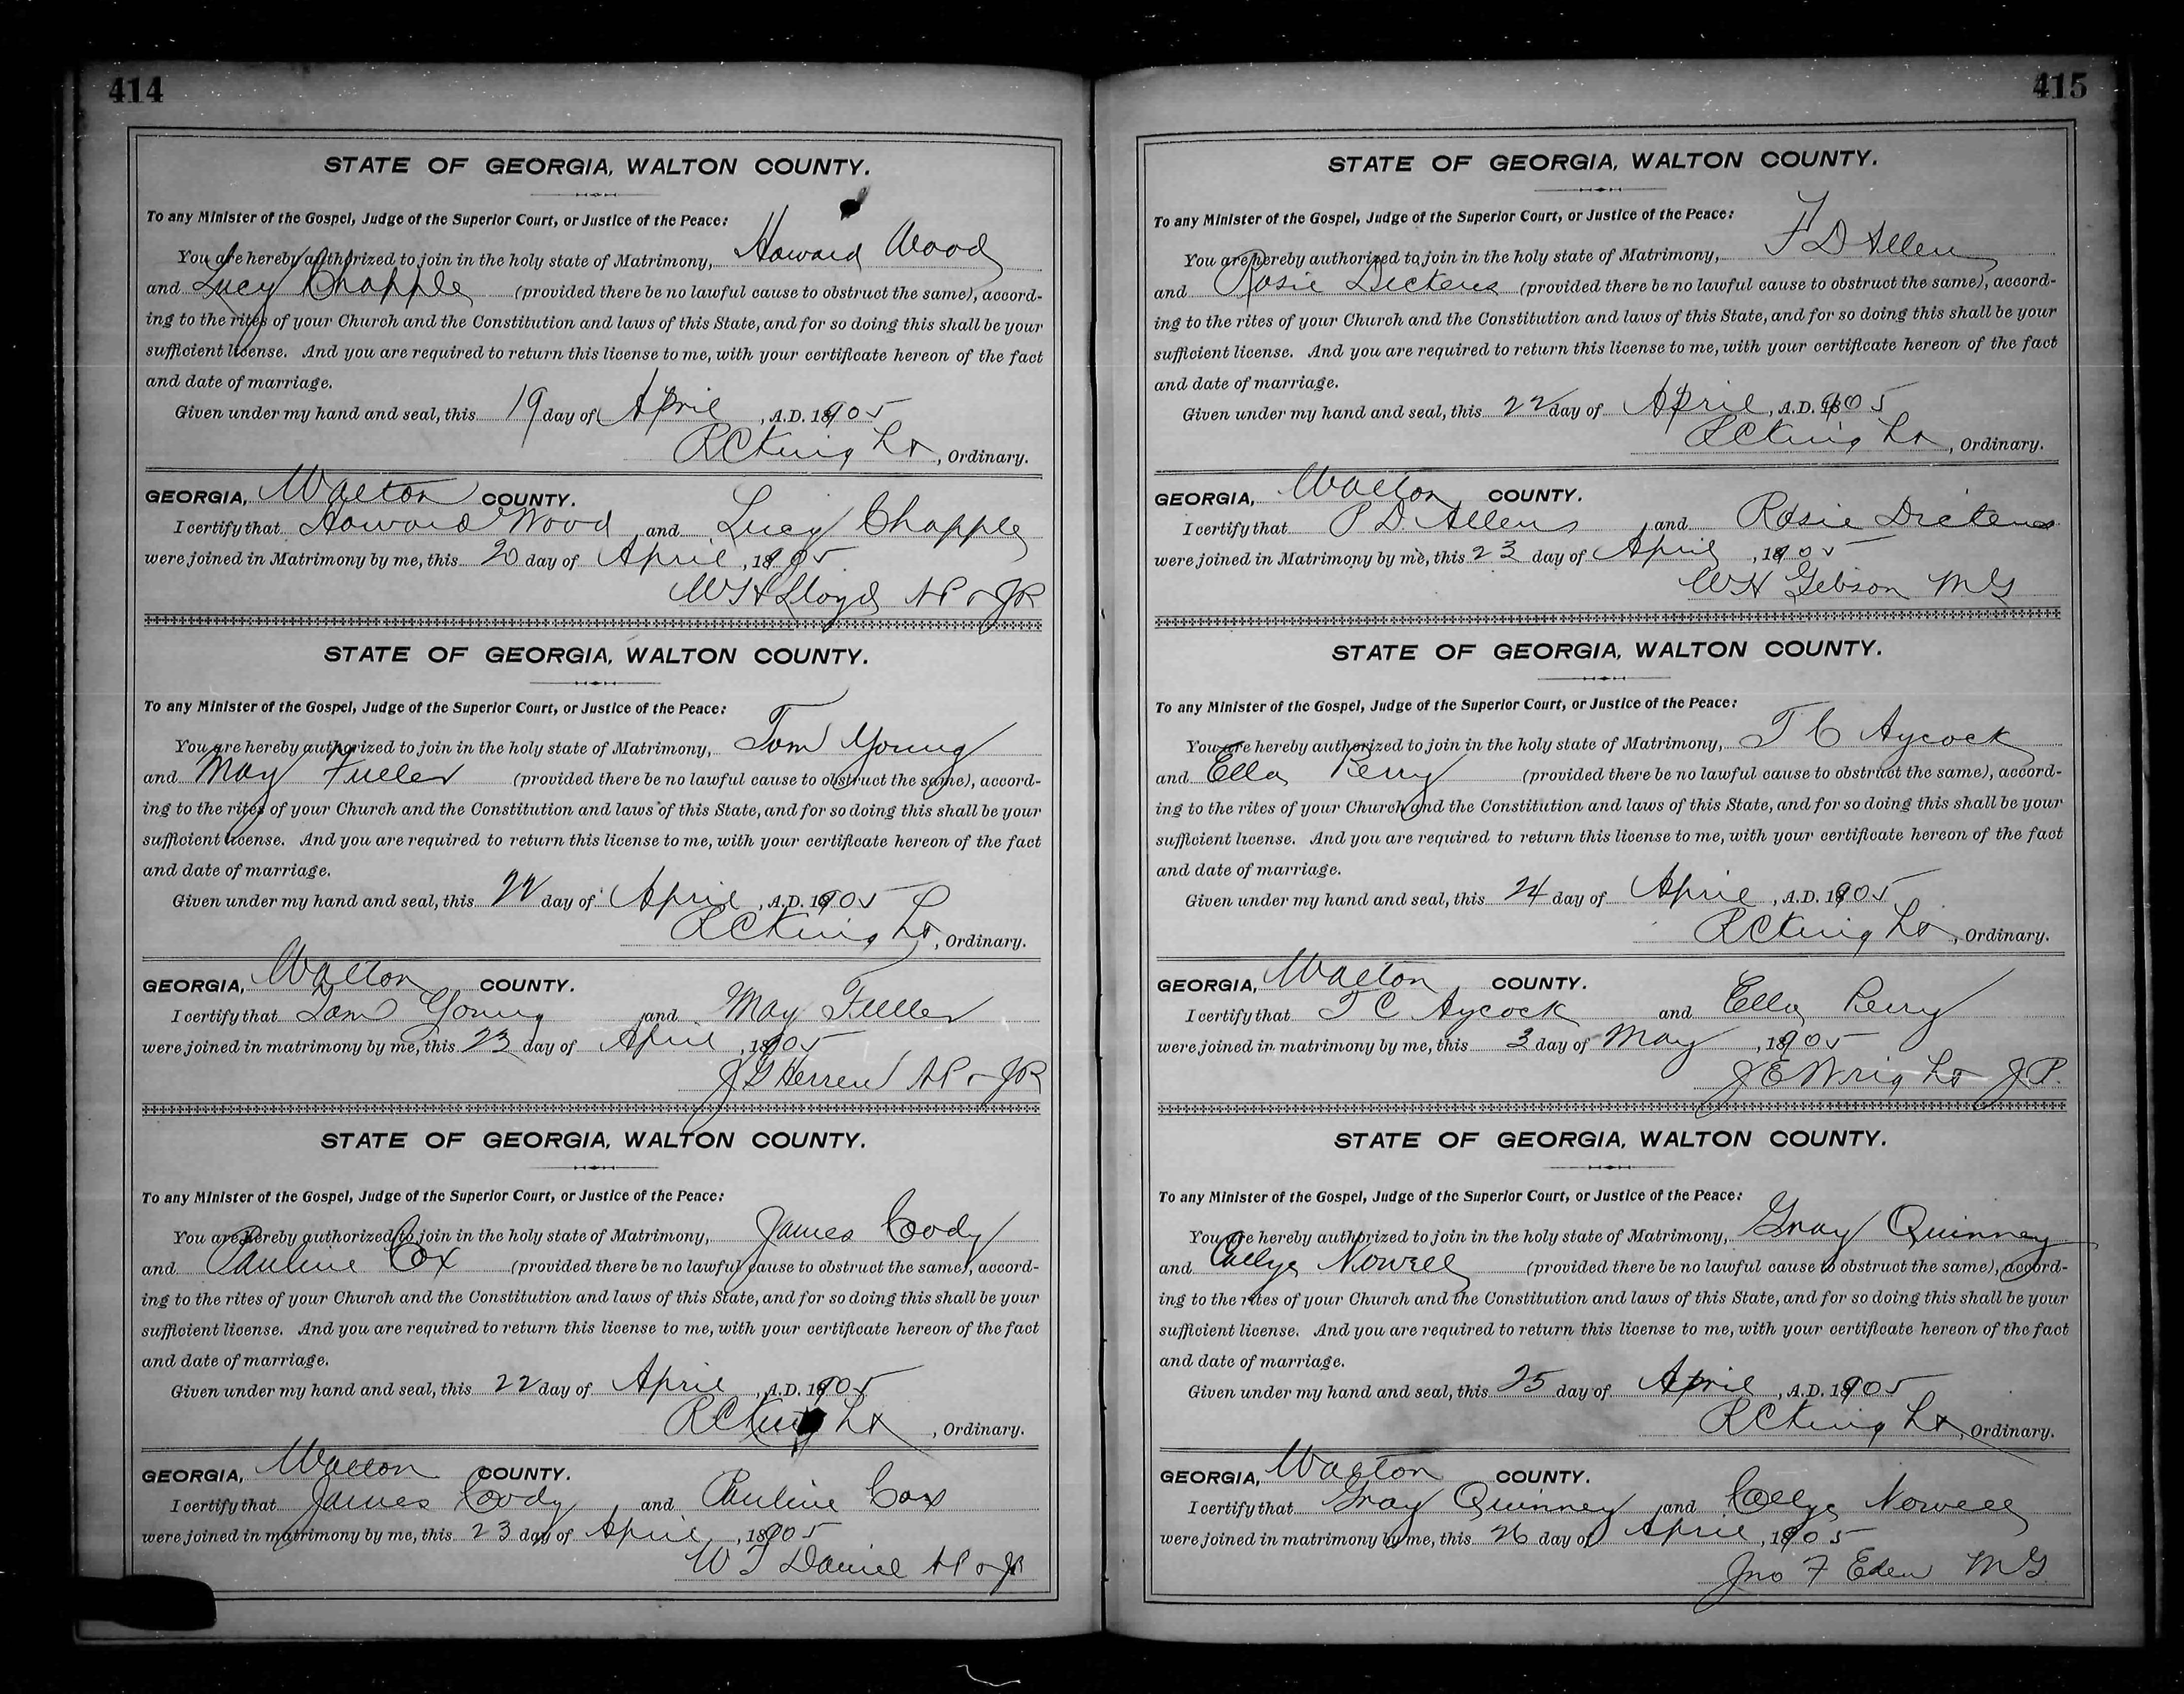 414
STATE OF GEORGIA, WALTON COUNTY.
To any Minister of the Gospel, Judge of the Superior Court, or Justice of the Peace:
You are hereby authorized to join in the holy state of Matrimony, Howard Wood
and Lucy Chapple (provided there be no lawful cause to obstruct the same), accord-
ing to the rites of your Church and the Constitution and laws of this State, and for so doing this shall be your
sufficient license. And you are required to return this license to me, with your certificate hereon of the fact
and date of marriage.
Given under my hand and seal, this 19 day of April, A.D. 1905
R C Knight, Ordinary.
GEORGIA, Walton COUNTY.
I certify that Howard Wood and Lucy Chapple
were joined in Matrimony by me, this 20 day of April, 1905
W H Lloyd NP & JP
STATE OF GEORGIA, WALTON COUNTY.
To any Minister of the Gospel, Judge of the Superior Court, or Justice of the Peace:
You are hereby authorized to join in the holy state of Matrimony, Tom Young
and May Fuller (provided there be no lawful cause to obstruct the same), accord-
ing to the rites of your Church and the Constitution and laws of this State, and for so doing this shall be your
sufficient license. And you are required to return this license to me, with your certificate hereon of the fact
and date of marriage.
Given under my hand and seal, this 22 day of April, A.D. 1905
R C Knight, Ordinary.
GEORGIA, Walton COUNTY.
I certify that Tom Young and May Fuller
were joined in matrimony by me, this 23 day of April, 1905
J G Herren NP & JP
STATE OF GEORGIA, WALTON COUNTY.
To any Minister of the Gospel, Judge of the Superior Court, or Justice of the Peace:
You are hereby authorized to join in the holy state of Matrimony, James Cody
and Pauline Cox (provided there be no lawful cause to obstruct the same), accord-
ing to the rites of your Church and the Constitution and laws of this State, and for so doing this shall be your
sufficient license. And you are required to return this license to me, with your certificate hereon of the fact
and date of marriage.
Given under my hand and seal, this 22 day of April, A.D. 1905
R C Knight, Ordinary.
GEORGIA, Walton COUNTY.
I certify that James Coody and Pauline Cox
were joined in matrimony by me, this 23 day of April, 1905
W T Daniel NP & JP
415
STATE OF GEORGIA, WALTON COUNTY.
To any Minister of the Gospel, Judge of the Superior Court, or Justice of the Peace:
You are hereby authorized to join in the holy state of Matrimony, F D Allen
and Rosie Dickens (provided there be no lawful cause to obstruct the same), accord-
ing to the rites of your Church and the Constitution and laws of this State, and for so doing this shall be your
sufficient license. And you are required to return this license to me, with your certificate hereon of the fact
and date of marriage.
Given under my hand and seal, this 22 day of April, A.D. 1905
R C Knight, Ordinary.
GEORGIA, Walton COUNTY.
I certify that P D. Allens and Rosie Dickens
were joined in Matrimony by me, this 23 day of April, 1905
W H Gebson MG
STATE OF GEORGIA, WALTON COUNTY.
To any Minister of the Gospel, Judge of the Superior Court, or Justice of the Peace:
You are hereby authorized to join in the holy state of Matrimony, T C Aycock
and Ella Perry (provided there be no lawful cause to obstruct the same), accord-
ing to the rites of your Church and the Constitution and laws of this State, and for so doing this shall be your
sufficient license. And you are required to return this license to me, with your certificate hereon of the fact
and date of marriage.
Given under my hand and seal, this 24 day of April, A.D. 1905
R C Knight, Ordinary.
GEORGIA, Walton COUNTY.
I certify that T C Aycock and Ella Perry
were joined in matrimony by me, this 3 day of May, 1905
J E Wright J.P.
STATE OF GEORGIA, WALTON COUNTY.
To any Minister of the Gospel, Judge of the Superior Court, or Justice of the Peace:
You are hereby authorized to join in the holy state of Matrimony, Gray Quinney
and Callye Nowell (provided there be no lawful cause to obstruct the same), accord-
ing to the rites of your Church and the Constitution and laws of this State, and for so doing this shall be your
sufficient license. And you are required to return this license to me, with your certificate hereon of the fact
and date of marriage.
Given under my hand and seal, this 25 day of April, A.D. 1905
R C Knight, Ordinary.
GEORGIA, Walton COUNTY.
I certify that Gray Quinney and Callye Nowell
were joined in matrimony by me, this 26 day of April, 1905
Jno F Eden MG